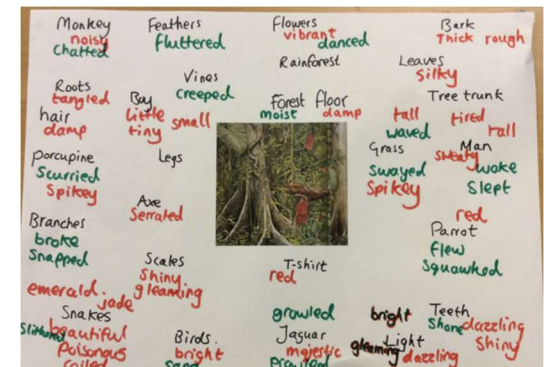 Monkey
noisy
chatted
Feathers
fluttered
Flowers
vibrant
danced
Bark
Thick rough
Rainforest
Leaves
silky
Vines
creeped
Roots
tangled
Boy
little
tiny small
Forest floor
moist damp
Tree trunk
tall tired
waved tall
hair
damp
Grass
swayed
spikey
Man
sweaty
woke
slept
porcupine
scurried
spikey
Legs
Axe
Serrated
red
Parrot
flew
squawked
Branches
broke
snapped
Scales
shiny
gleaming
T-shirt
red
emerald. jade
Snakes
slithered
beautiful
poisonous
coiled
Birds.
bright
sang
growled
Jaguar
majestic
prowled
bright
Light
gleaming dazzling
Teeth
Shone dazzling
shiny